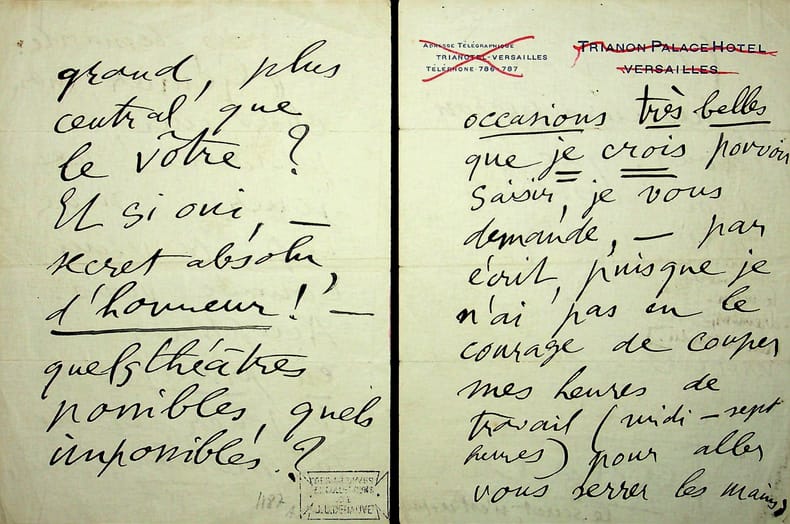 grand, plus
central que
le vôtre ?
Et si oui, —
secret absolu,
d'honneur ! —
quels théâtres
possibles, quels
impossibles ?
1187
J. U. DEBAUVE
ADRESSE TÉLÉGRAPHIQUE
TRIANOTEL-VERSAILLES
TÉLÉPHONE 786-787
TRIANON PALACE HOTEL
VERSAILLES
occasions très belles
que je crois pouvoir
saisir, je vous
demande, — par
écrit, puisque je
n'ai pas eu le
courage de couper
mes heures de
travail (midi — sept
heures) pour aller
vous serrer les mains,